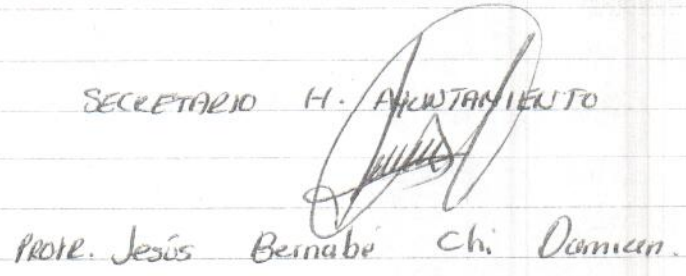 SECRETARIO H. AYUNTAMIENTO
PROFR. Jesús Bernabé Chi Damian.